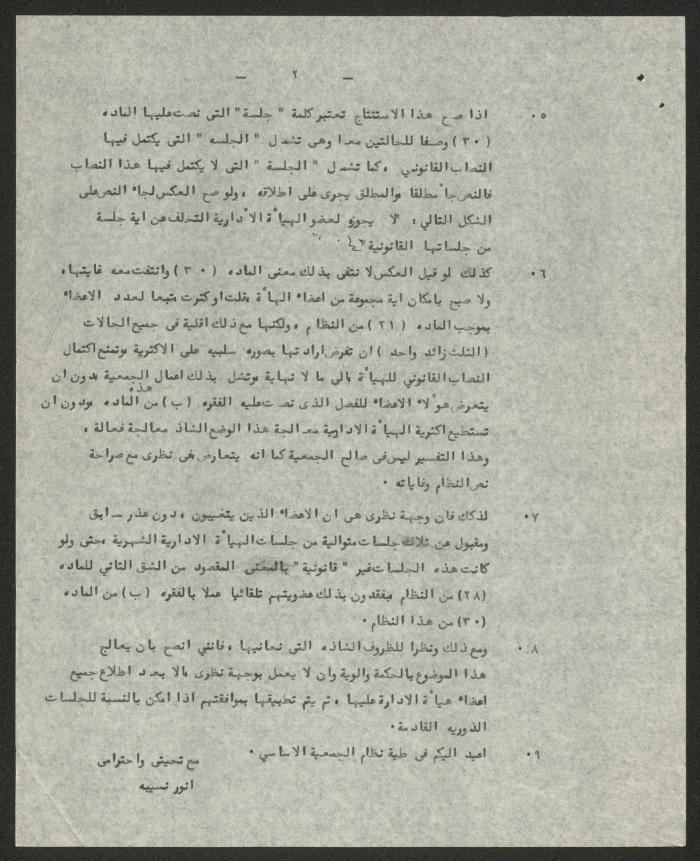 — ٢ —
٥. اذا صح هذا الاستنتاج تعتبر كلمة " جلسة " التى نصت عليها الماده
(٣٠) وصفا للحالتين معا وهى تشمل " الجلسه " التى يكتمل فيها
النصاب القانوني ، كما تشمل " الجلسة " التى لا يكتمل فيها هذا النصاب
فالنص جاء مطلقا والمطلق يجرى على اطلاقه ، ولو صح العكس لجاء النص على
الشكل التالي : " لا يجوز لعضو الهيأة الادارية التخلف عن اية جلسة
من جلساتها القانونية "
٦. كذلك لو قيل العكس لا نتفى بذلك معنى الماده (٣٠) وانتفت معه غايتها ،
ولا صبح بامكان اية مجموعة من اعضاء الهيأة ، قلت او كثرت ، تبعا لعدد الاعضاء
بموجب الماده (٢١) من النظام ، ولكنها مع ذلك اقلية فى جميع الحالات
(الثلث زائد واحد) ان تفرض ارادتها بصوره سلبيه على الاكثرية وتمنع اكتمال
النصاب القانوني للهيأة ، الى ما لا نهاية وتشل بذلك اعمال الجمعية بدون ان
يتعرض هؤلاء الاعضاء للفصل الذى نصت عليه الفقره (ب) من هذه الماده ، وبدون ان
تستطيع اكثرية الهيأة الادارية معالجة هذا الوضع الشاذ معالجة فعالة ،
وهذا التفسير ليس فى صالح الجمعية كما انه يتعارض فى نظرى مع صراحة
نص النظام وغاياته .
٧. لذلك فان وجهة نظرى هى ان الاعضاء الذين يتغيبون ، دون عذر سابق
ومقبول عن ثلاث جلسات متوالية من جلسات الهيأة الادارية الشهرية ، حتى ولو
كانت هذه الجلسات غير " قانونية " بالمعنى المقصود من الشق الثاني للماده
(٢٨) من النظام ، يفقدون بذلك عضويتهم تلقائيا عملا بالفقره (ب) من الماده
(٣٠) من هذا النظام .
٨. ومع ذلك ونظرا للظروف الشاذه التى نعانيها ، فانني انصح بان يعالج
هذا الموضوع بالحكمة والروية وان لا يعمل بوجهة نظرى ، الا بعد اطلاع جميع
اعضاء هيأة الادارة عليها ، ثم يتم تطبيقها بموافقتهم اذا امكن بالنسبة للجلسات
الدوريه القادمة .
٩. اعيد اليكم فى طية نظام الجمعية الاساسي .
مع تحيتى واحترامى
انور نسيبه